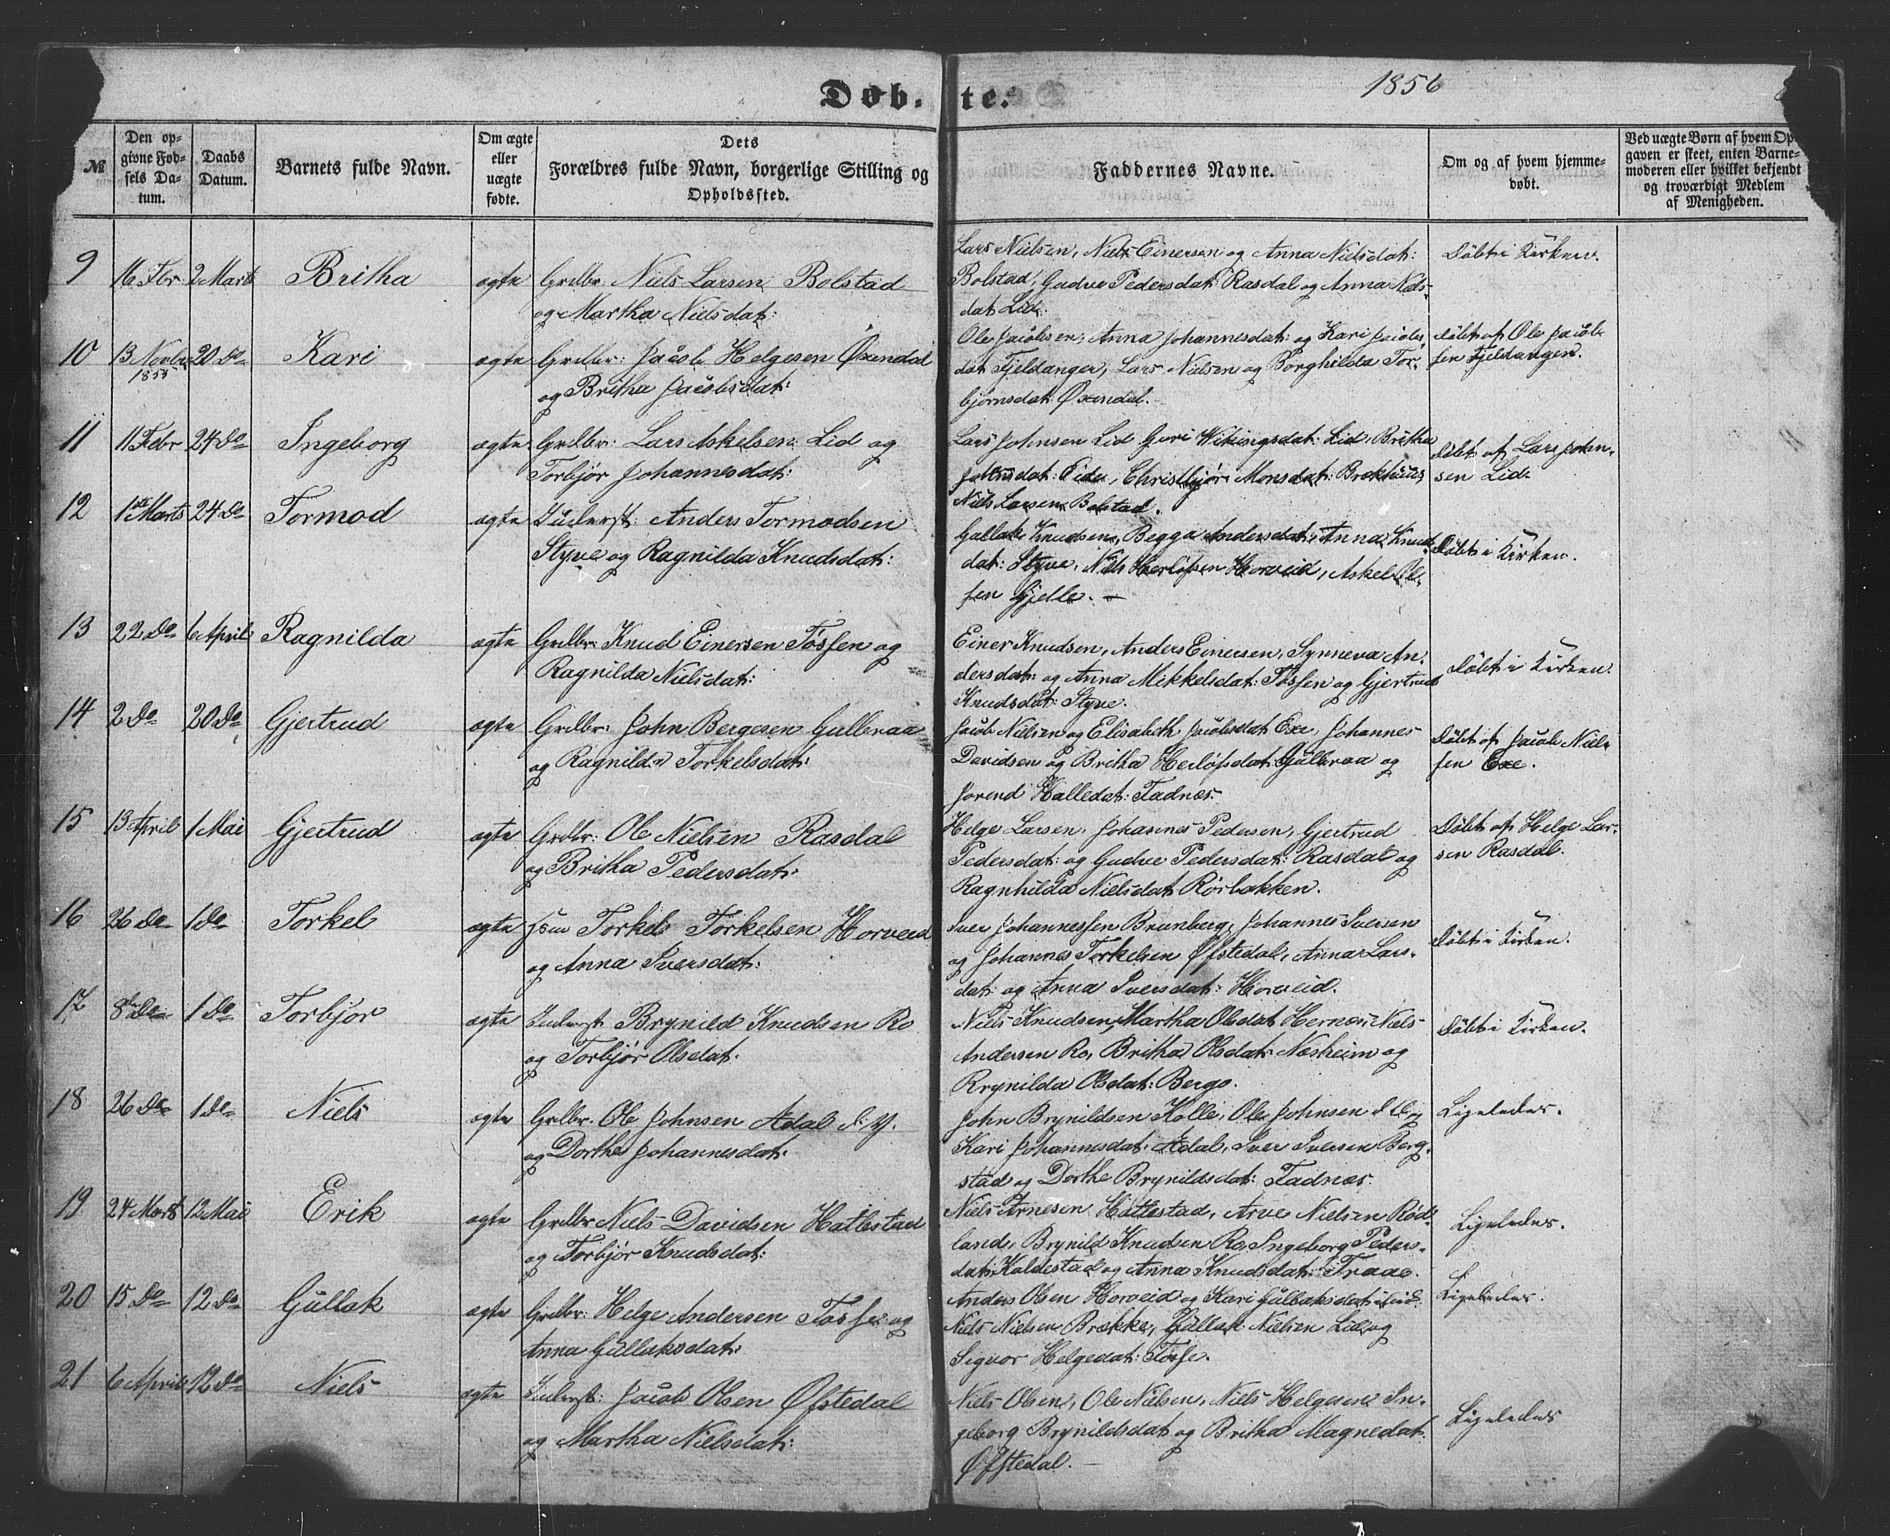 Døbte.
1856
№
Den opgivne Fødsels Datum.
Daabs Datum.
Barnets fulde Navn.
Om ægte eller uægte fødte.
Dets Forældres fulde Navn, borgerlige Stilling og Opholdssted.
Faddernes Navne.
Om og af hvem hjemmedøbt.
Ved uægte Børn af hvem Opgaven er skeet, enten Barnemoderen eller hvilket bekjendt og troværdigt Medlem af Menigheden.
9 16 Febr 2 Marts Britha ægte Grdbr: Niels Larsen Bolstad
og Martha Nielsdat:
Lars Nielsen, Niels Einersen og Anna Nielsdat:
Bolstad, Gudve Pedersdat: Rasdal og Anna Niels-
dat Lid.
Døbt i Kirken.
10 13 Novbr 1855 20 Do Kari ægte Grdbr: Jacob Helgesen Øxendal
og Britha Jacobsdat:
Ole Jacobsen, Anna Johannesdat: og Kari Jacobs-
dat Fjeldanger, Lars Nielsen og Borghilda Tor-
bjørnsdat: Øxendal.
Døbt af Ole Jacob-
sen Fjeldangen.
11 11 Febr 24 Do Ingeborg ægte Grdbr: Lars Askelsen Lid og
Torbjør Johannesdat:
Lars Johnsen Lid Guri Wikingsdat: Lid, Britha
dat: Eide, Christbjør Monsdat: Brekhuus,
Niels Larsen Bolstad.
Døbt af Lars John-
sen Lid.
12 1ste Marts 24 Do Tormod ægte Inderst: Anders Tormodsen
Styve og Ragnilda Knudsdat:
Gullak Knudsen, Begga Andersdat: Anna Knuds-
dat: Styve, Niels Herlofsen Horveid, Askel Ol-
sen Gjelle. —
Døbt i Kirken.
13 22 Do 6 April Ragnilda ægte Grdbr: Knud Einersen Tøssen og
Ragnilda Nielsdat:
Einer Knudsen, Anders Einersen, Synneva An-
dersdat: og Anna Mikkelsdat: Tøssen og Gjertrud
Knudsdat: Styve.
Døbt i Kirken.
14 2 Do 20 Do Gjertrud ægte Grdbr: John Bergesen Gulleraa
og Ragnilda Torkelsdat:
Jacob Nielsen og Elisabeth Jacobsdat Exe, Johannes
Davidsen og Britha Herlofsdat: Gulleraa og
Jorend Halledat: Fadnes.
Døbt af Jacob Niel-
sen Exe.
15 13 April 1 Mai Gjertrud ægte Grdbr: Ole Nielsen Rasdal
og Britha Pedersdat:
Helge Larsen, Johannes Pedersen, Gjertrud
Pedersdat: og Gudve Pedersdat: Rasdal og
Ragnhilda Nielsdat Rørbakken.
Døbt af Helge Lar-
sen Rasdal.
16 26 Do 1 Do Torkel ægte Torkel Torkelsen Horveid
og Anna Sversdat:
Sver Johannessen Brunberg, Johannes Sversen
og Johannes Torkelsen Øfstedal, Anna Lars-
dat: og Anna Sversdat: Horveid.
Døbt i Kirken.
17 8de Do 1 Do Torbjør ægte Inderst Brynild Knudsen Ro
og Torbjør Olsdat:
Niels Knudsen, Martha Olsdat Hernes, Niels
Andersen Ro, Britha Olsdat: Næsheim og
Brynilda Olsdat: Berge.
Døbt i Kirken.
18 26 Do 1 Do Niels ægte Grdbr: Ole Johnsen Ædal d: y.
og Dorthe Johannesdat:
John Brynildsen Kolle, Ole Johnsen d Æ. og
Kari Johannesdat: Ædal, Sver Sversen Berg-
stad og Dorthe Brynildsdat: Fadnes.
Ligeledes.
19 24 Marts 12 Mai Erik ægte Grdbr Niels Davidsen Hatlestad
og Torbjør Knudsdat:
Niels Arnesen Hatlestad, Arve Nielsen Rød-
land, Brynild Knudsen Ro, Ingeborg Peders-
dat: Haldestad og Anna Knudsdat: Traae.
Ligeledes.
20 15 Do 12 Do Gullak ægte Grdbr: Helge Andersen Tøsse og
Anna Gullaksdat:
Anders Olsen Horveid og Kari Gullaksdat: Lid.
Niels Nielsen Brække, Gullak Nielsen Lid og
Signor Helgedat: Tøsse.
Ligeledes.
21 6 April 12 Do Niels ægte Inderst: Jacob Olsen Øfstedal
og Martha Nielsdat:
Niels Olsen, Ole Nielsen, Niels Helgesen In-
geborg Brynildsdat og Britha Magnedat:
Øfstedal. —
Ligeledes